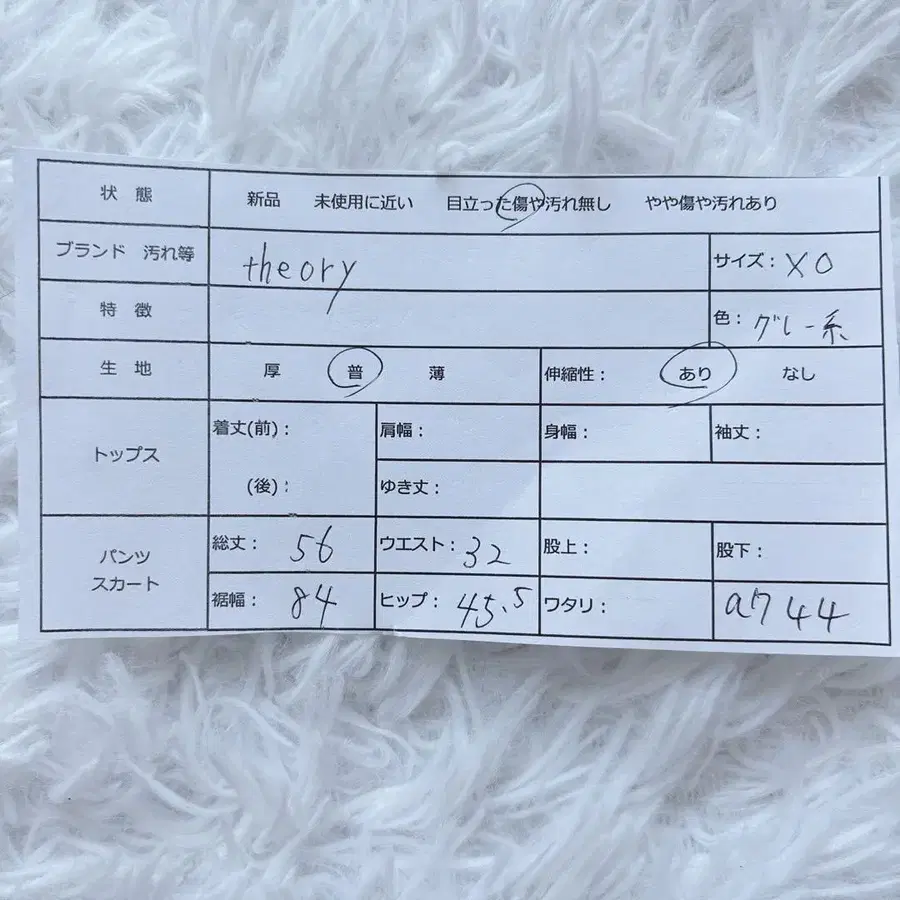 状 態 新品 未使用に近い 目立った傷や汚れ無し やや傷や汚れあり
ブランド 汚れ等 theory サイズ： XO
特 徴 色： グレー系
生 地 厚 普 薄 伸縮性： あり なし
トップス 着丈(前)： 肩幅： 身幅： 袖丈：
(後)： ゆき丈：
パンツ 総丈： 56 ウエスト： 32 股上： 股下：
スカート 裾幅： 84 ヒップ： 45.5 ワタリ： 44